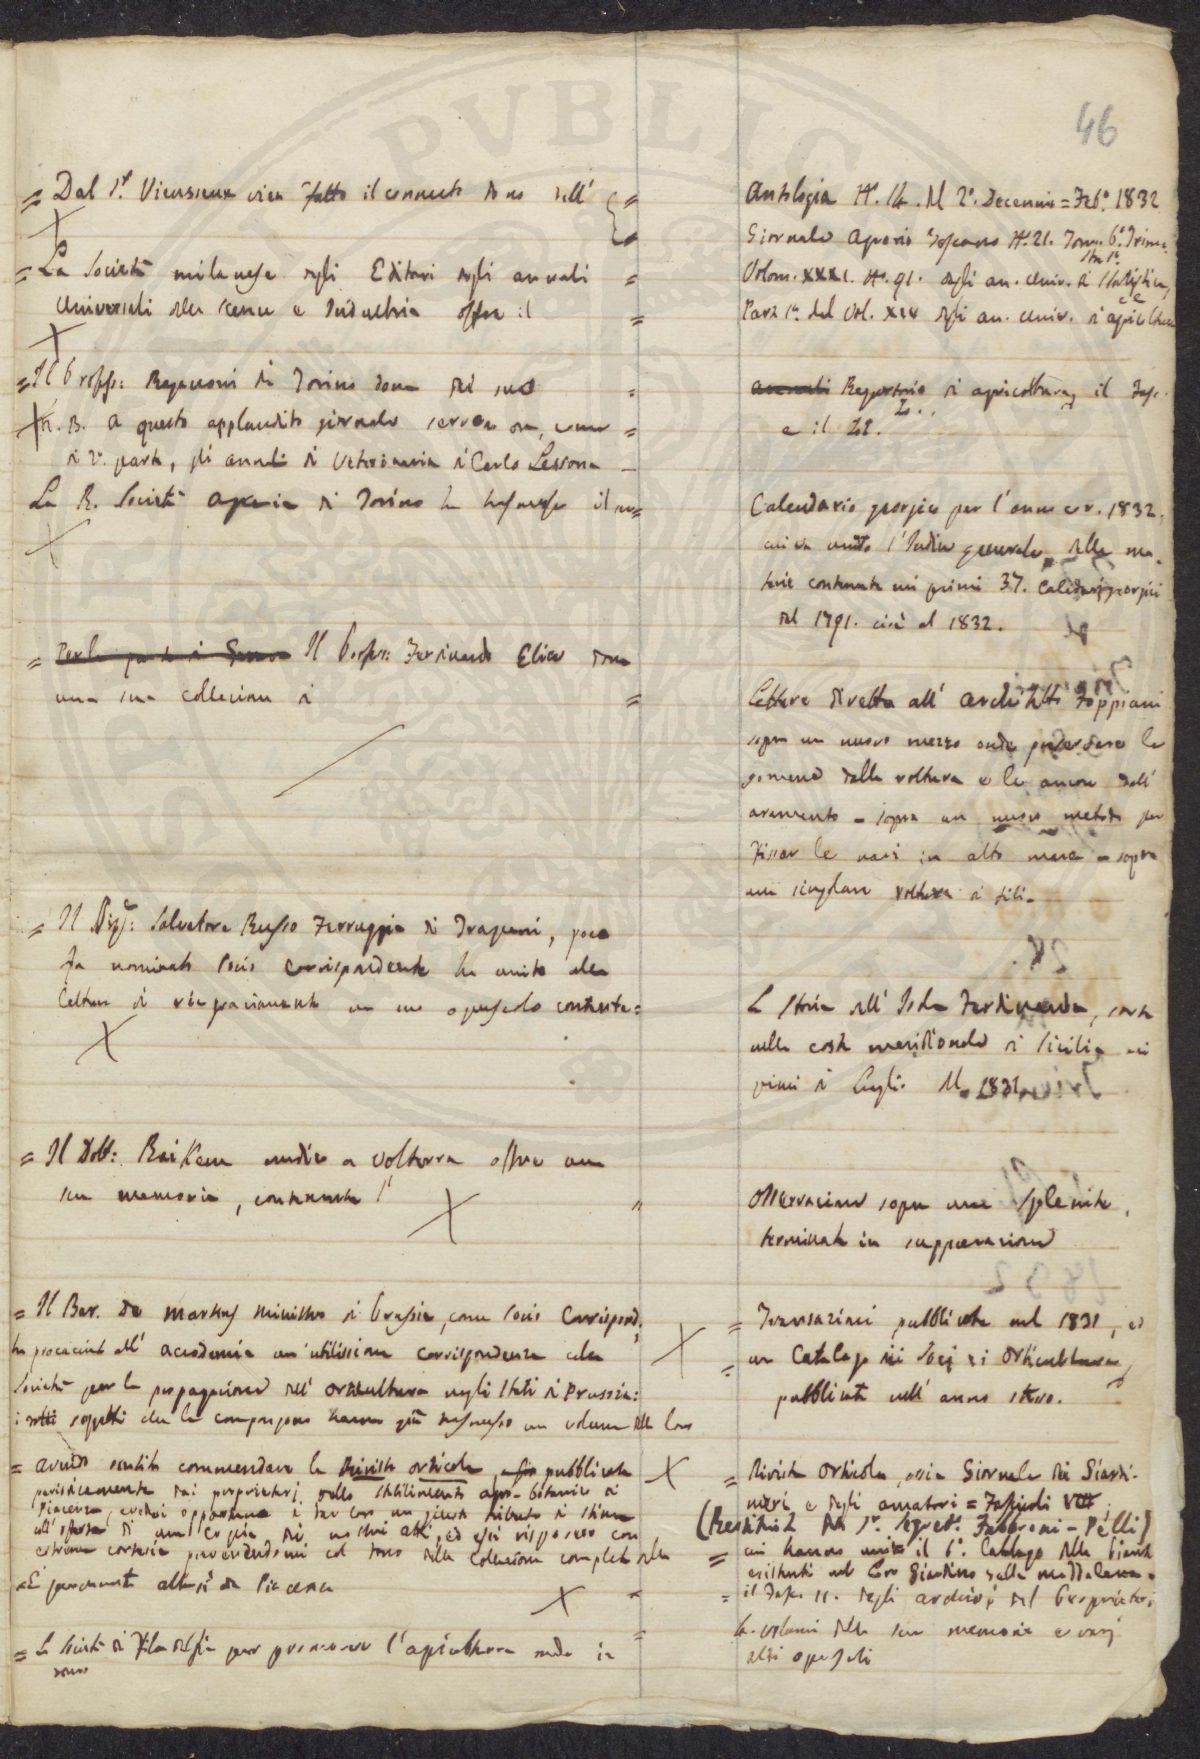 46
= Dal Sr. Vieusseux vien fatto il consueto dono dell'
Antologia N°. 14. del 2°. Decennio = Feb°. 1832
Giornale Agrario Toscano N°. 21.
= La Società milanese degli Editori degli annali
universali delle scienze e Industria offre il
Volum. XXXI. N°. 91. degli an. univ. di Statistica,
Part. 1a. del Vol. XIV degli an. univ. di agricoltura
= Il Profess: Ragazzoni di Torino dona del suo
annali Repertorio di agricoltura, il Fasc.
e il
N. B. a questo applaudito giornale servon ora, come
di 2a. parte, gli annali di Veterinaria di Carlo Lessona
La R. Società Agraria di Torino ha trasmesso il suo
Calendario georgico per l'anno cor. 1832.
cui va unito l'Indice generale delle ma-
terie contenute nei primi 37. Calendarj georgici
dal 1791. cioè al 1832.
= Il Profess: Ferdinando Elice dona
una sua collezione di
Lettere diretta all' Architetto Foppiani
sopra un nuovo mezzo onde preservare le
gomene dalla rottura e le ancore dall'
aramento - sopra un nuovo metodo per
fissar le navi in alto mare - sopra
una singolare rottura di fili.
= Il Sigr: Salvatore Russo Ferruggia di Trapani, poco
fa nominato Socio corrispondente ha unito alla
lettera di ringraziamento un suo opuscolo contenente =
La Storia dell' Isola Ferdinanda, sorta
nella costa meridionale di Sicilia nei
primi di Luglio del 1831.
= Il Dott: Raikem medico a Volterra offre una
sua memoria, contenente l'
Osservazione sopra una Splenite,
terminata in suppurazione
= Il Bar. De Martens Ministro di Prussia, come Socio Corrispond.
ha procacciato all' accademia un' utilissima corrispondenza colla
Società per la propagazione dell' orticultura negli Stati di Prussia:
i dotti soggetti che la compongono hanno già trasmesso un volume delle loro
= Transazioni pubblicate nel 1831, ed
un Catalogo dei Socj di Orticultura,
pubblicato nell' anno stesso.
= avendo sentito commendare la Rivista orticola, pubblicata
periodicamente dai proprietarj dello stabilimento agro-botanico di
Piacenza, credei opportuno di far loro un giusto tributo di stima
coll' offerta di una copia dei nostri atti, ed essi risposero con
estrema cortesia prevenendomi col dono della collezione completa della
= Rivista Orticola, ossia Giornale dei Giardi-
nieri e degli amatori = Fascicoli VIII.
(Restituita dal Sr. Segret°. Fabbroni-Pelli)
= cui hanno unito il 6°. Catalogo delle piante
esistenti nel loro giardino della Maddalena =
= È pervenuto altresì da Piacenza
= il Fasc. 11. degli archivj del Proprietario
= La Società di Filadelfia per promuover l'agricoltura manda in
dono
4. volumi delle sue memorie e varj
altri opuscoli